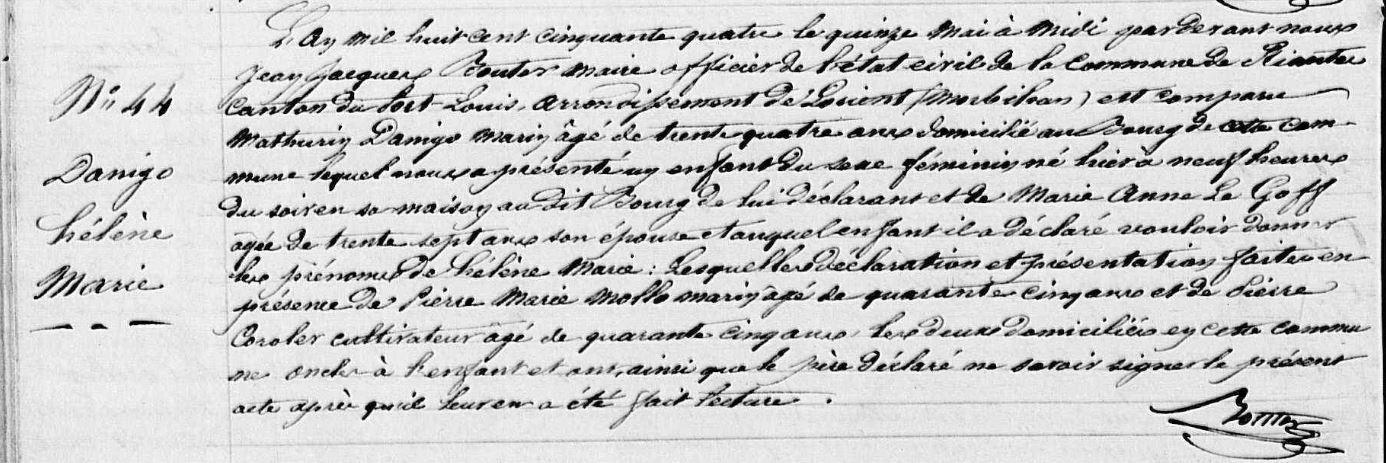 N° 44
Danigo
hélène
Marie
L'an mil huit cent cinquante quatre le quinze Mai à Midi par devant nous
Jean Jacques Maire officier de l'état civil de la Commune de Riantec
Canton du Port-Louis, arrondissement de Lorient (Morbihan) est comparu
Mathurin Danigo marin âgé de trente quatre ans domicilié au Bourg de cette com-
mune lequel nous a présenté un enfant du sexe féminin né hier à neuf heures
du soir en sa maison au dit Bourg de lui déclarant et de Marie Anne Le Goff
agée de trente sept ans son épouse et auquel enfant il a déclaré vouloir donner
les prénoms de hélène Marie : Lesquelles déclaration et présentation faites en
présence de Pierre Marie Mollo marin âgé de quarante cinq ans et de Pierre
Coroler cultivateur âgé de quarante cinq ans, les deux domiciliés en cette commu
ne oncles à l'enfant et ont, ainsi que le père déclaré ne savoir signer le présent
acte après qu'il leur en a été fait lecture.